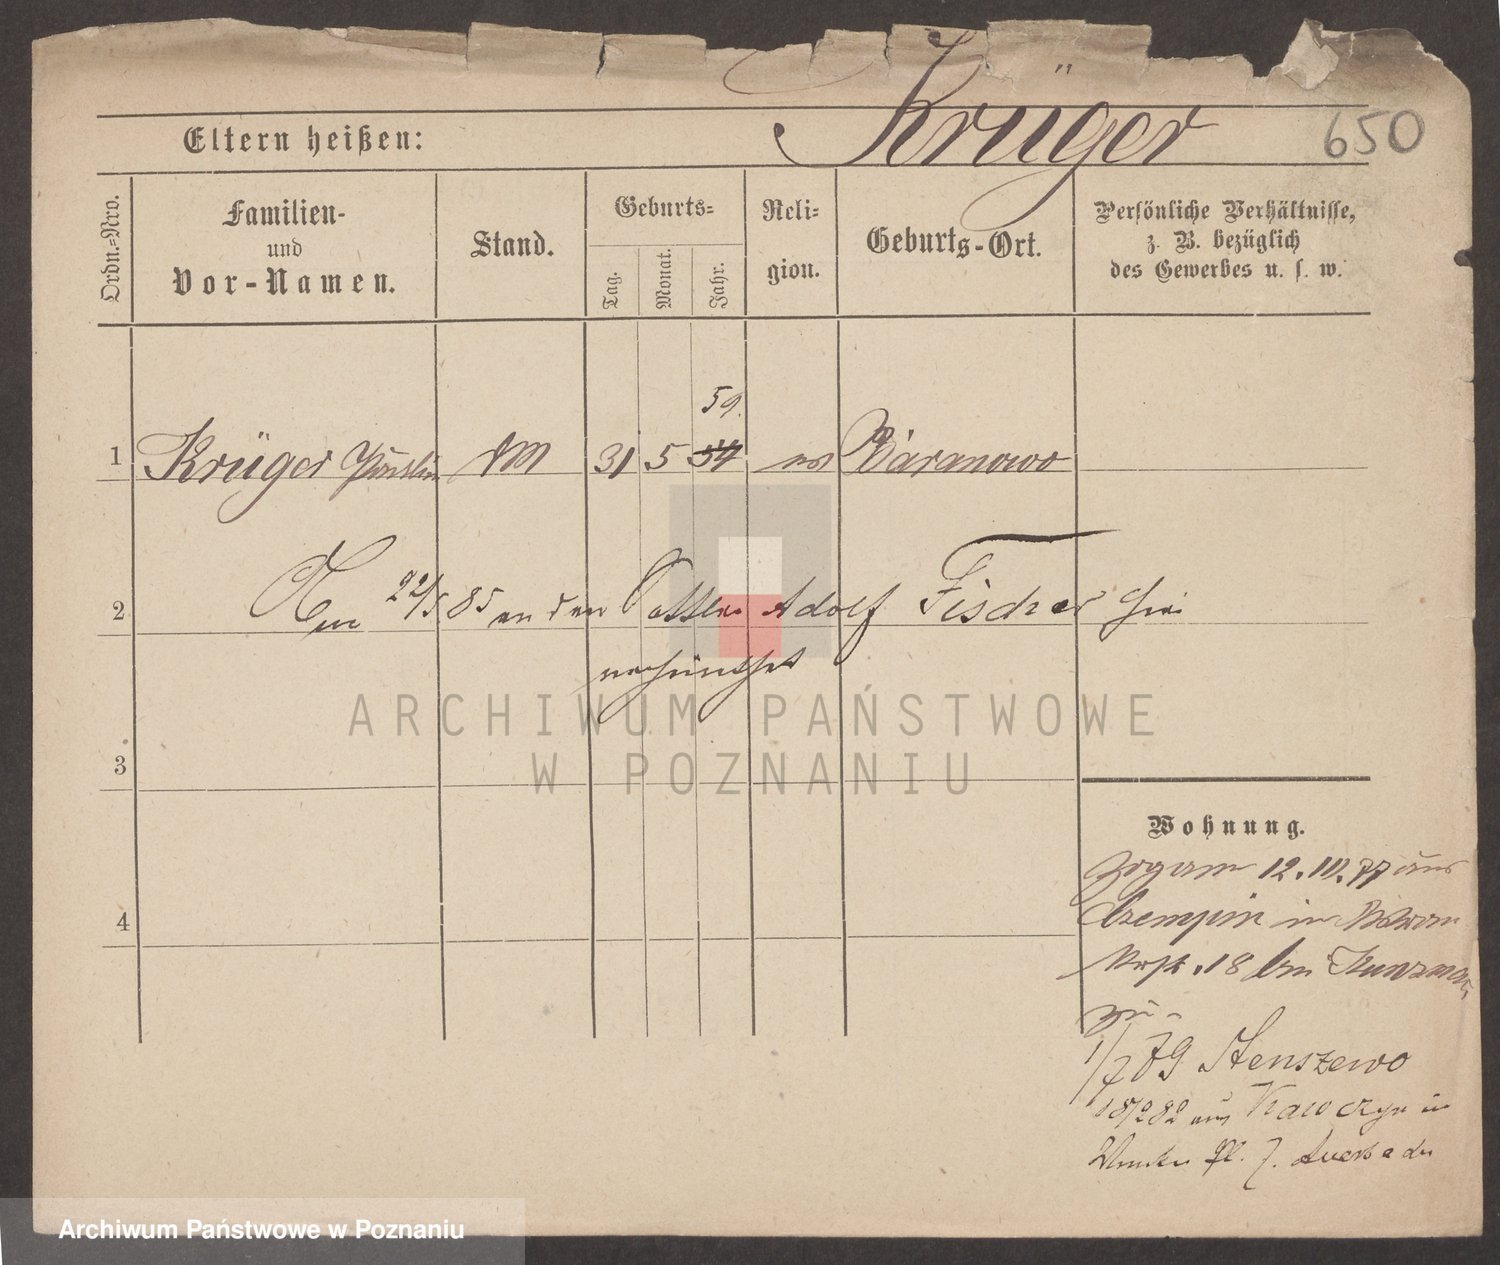 Krüger
650
Eltern heißen:
Ordn.=Nro.
Familien-
und
Vor-Namen.
Stand.
Geburts=
Tag.
Monat.
Jahr.
Reli=
gion.
Geburts-Ort.
Persönliche Verhältnisse,
z. B. bezüglich
des Gewerbes u. s. w.
59.
1 Krüger 31 5 54 Baranowo
2 22/5 85 an den Adolf Fischer hier
verheirathet
3
4
Wohnung.
Zog am 12.10.77 aus
Czempin in
18 bei
zu.
1/7 79 Stenszewo
18/2 82 aus Kawczyn in
Pl. 7.
ARCHIWUM PAŃSTWOWE
W POZNANIU
Archiwum Państwowe w Poznaniu